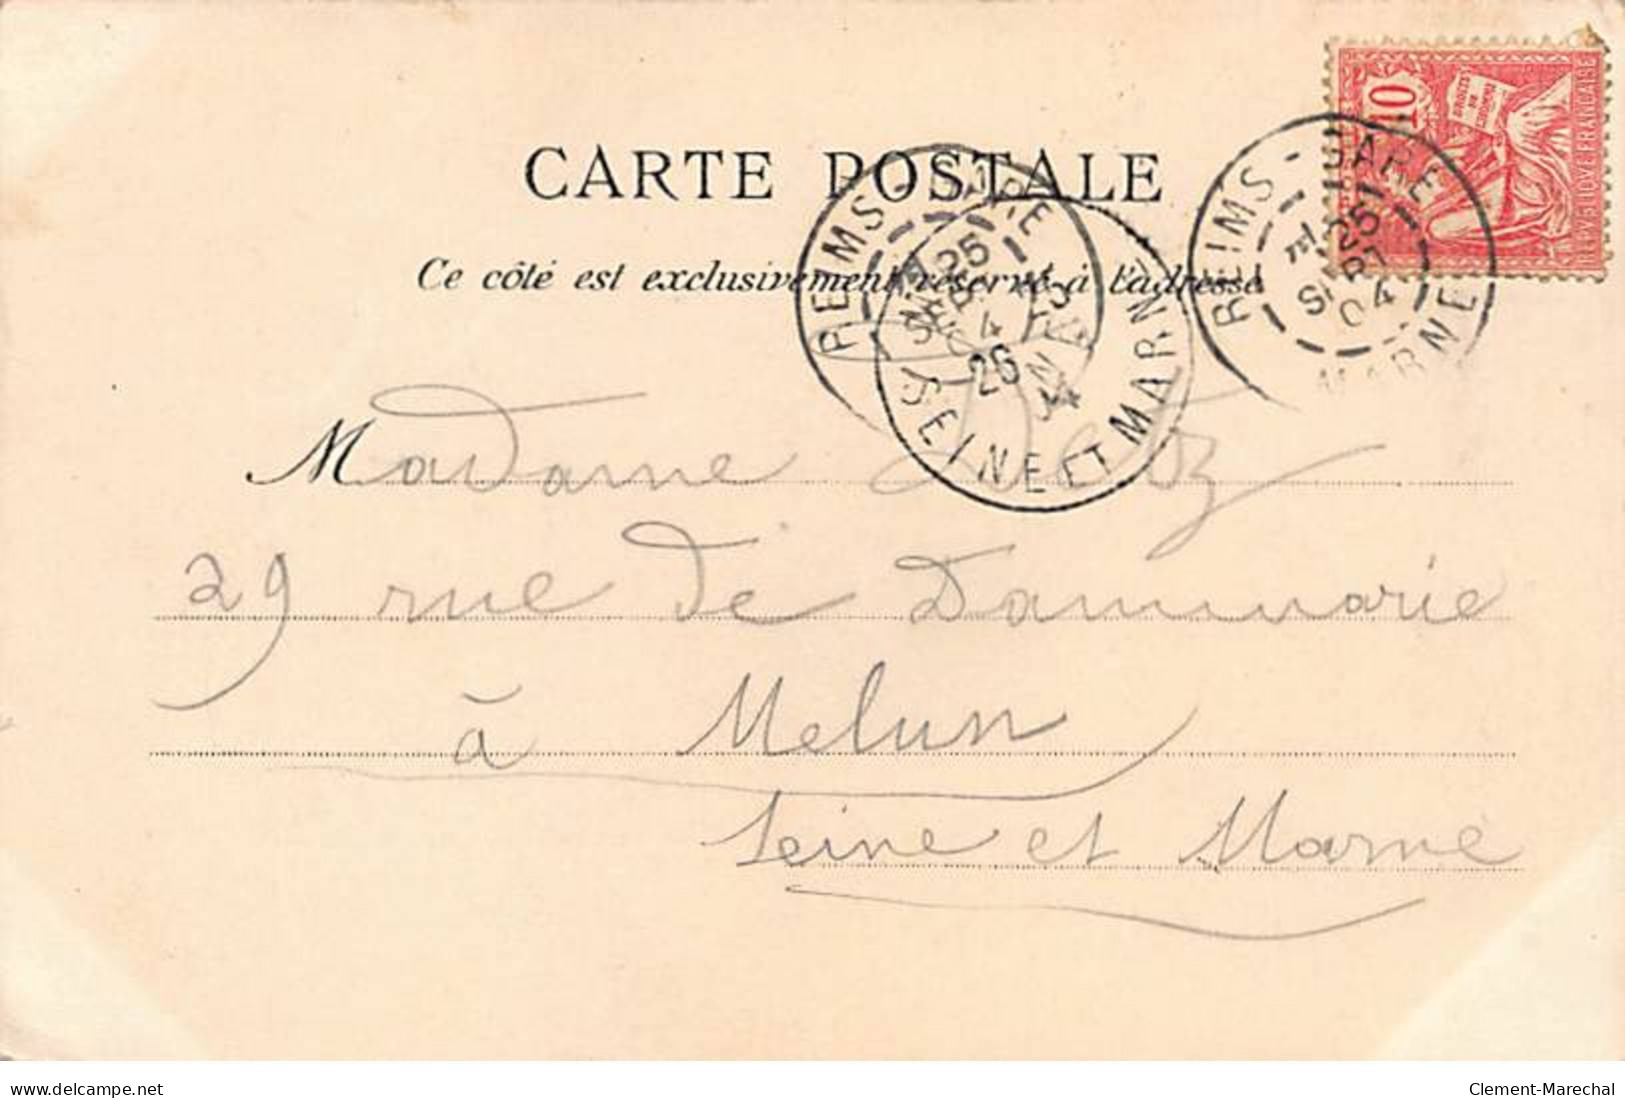 CARTE POSTALE
Ce côté est exclusivement réservé à l'adresse
10
DROITS DE L'HOMME
REPUBLIQUE FRANCAISE
REIMS-GARE
25
SEPT
04
MARNE
REIMS-GARE
25
SEPT
04
26
SEINE ET MARNE
Madame
29 rue de Dammarie
à Melun
Seine et Marne
www.delcampe.net
Clement-Marechal